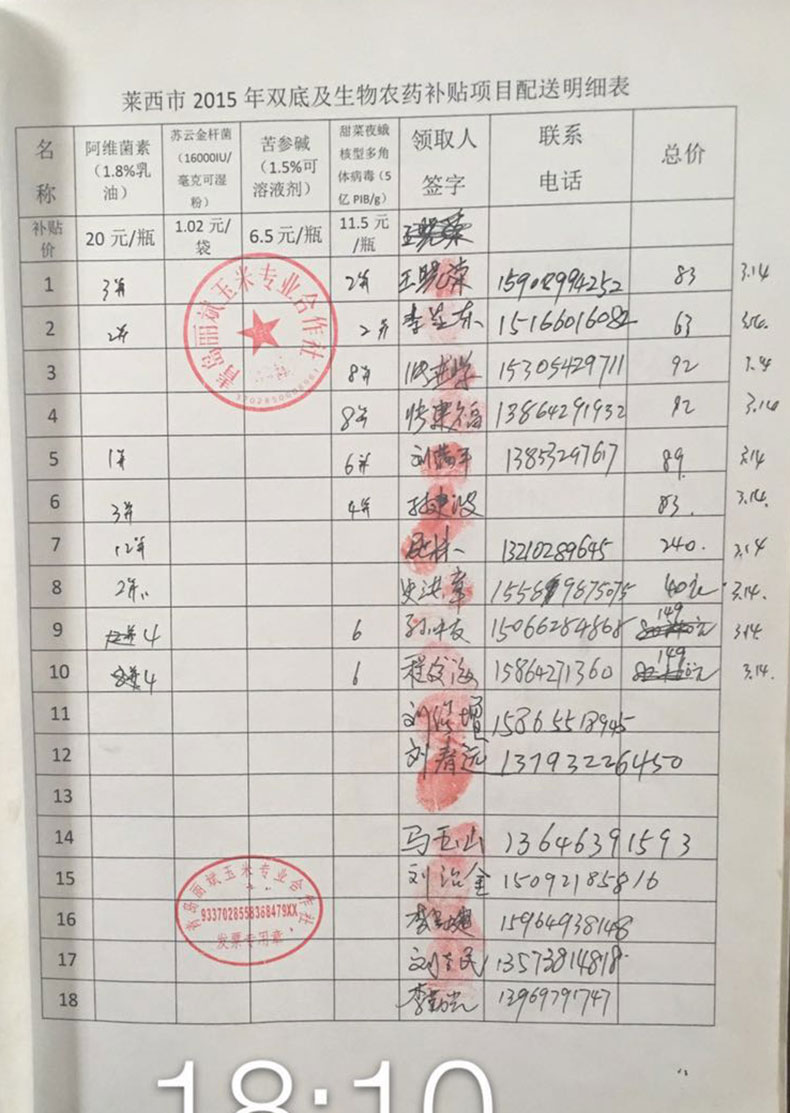 莱西市 2015 年双底及生物农药补贴项目配送明细表
名称 阿维菌素（1.8%乳油） 苏云金杆菌（16000IU/毫克可湿粉） 苦参碱（1.5%可溶液剂） 甜菜夜蛾核型多角体病毒（5亿 PIB/g） 领取人签字 联系电话 总价
补贴价 20 元/瓶 1.02 元/袋 6.5 元/瓶 11.5 元/瓶
1 3 2 83 3.14
2 2 2 李 东 15166016082 63
3 8 15305429711 92
4 8 13864291932 92 3.14
5 1 6 刘 平 13853297617 89. 3.14
6 3 4 83. 3.14.
7 12 13210289645 240. 3.14
8 2 史洪章 40元 3.14.
9 4 6 孙 15066284868 149 3.14
10 4 6 程 15864271360 149 3.14.
11 刘 增 15865518945
12 刘春远 13793226450
13
14 马玉山 13646391593
15 刘治金 15092185816
16 李 15964938148
17 刘 民 13573814818
18 李 13969791747
青岛丽斌玉米专业合作社
青岛丽斌玉米专业合作社
9337028558368479XX
发票专用章
18:10